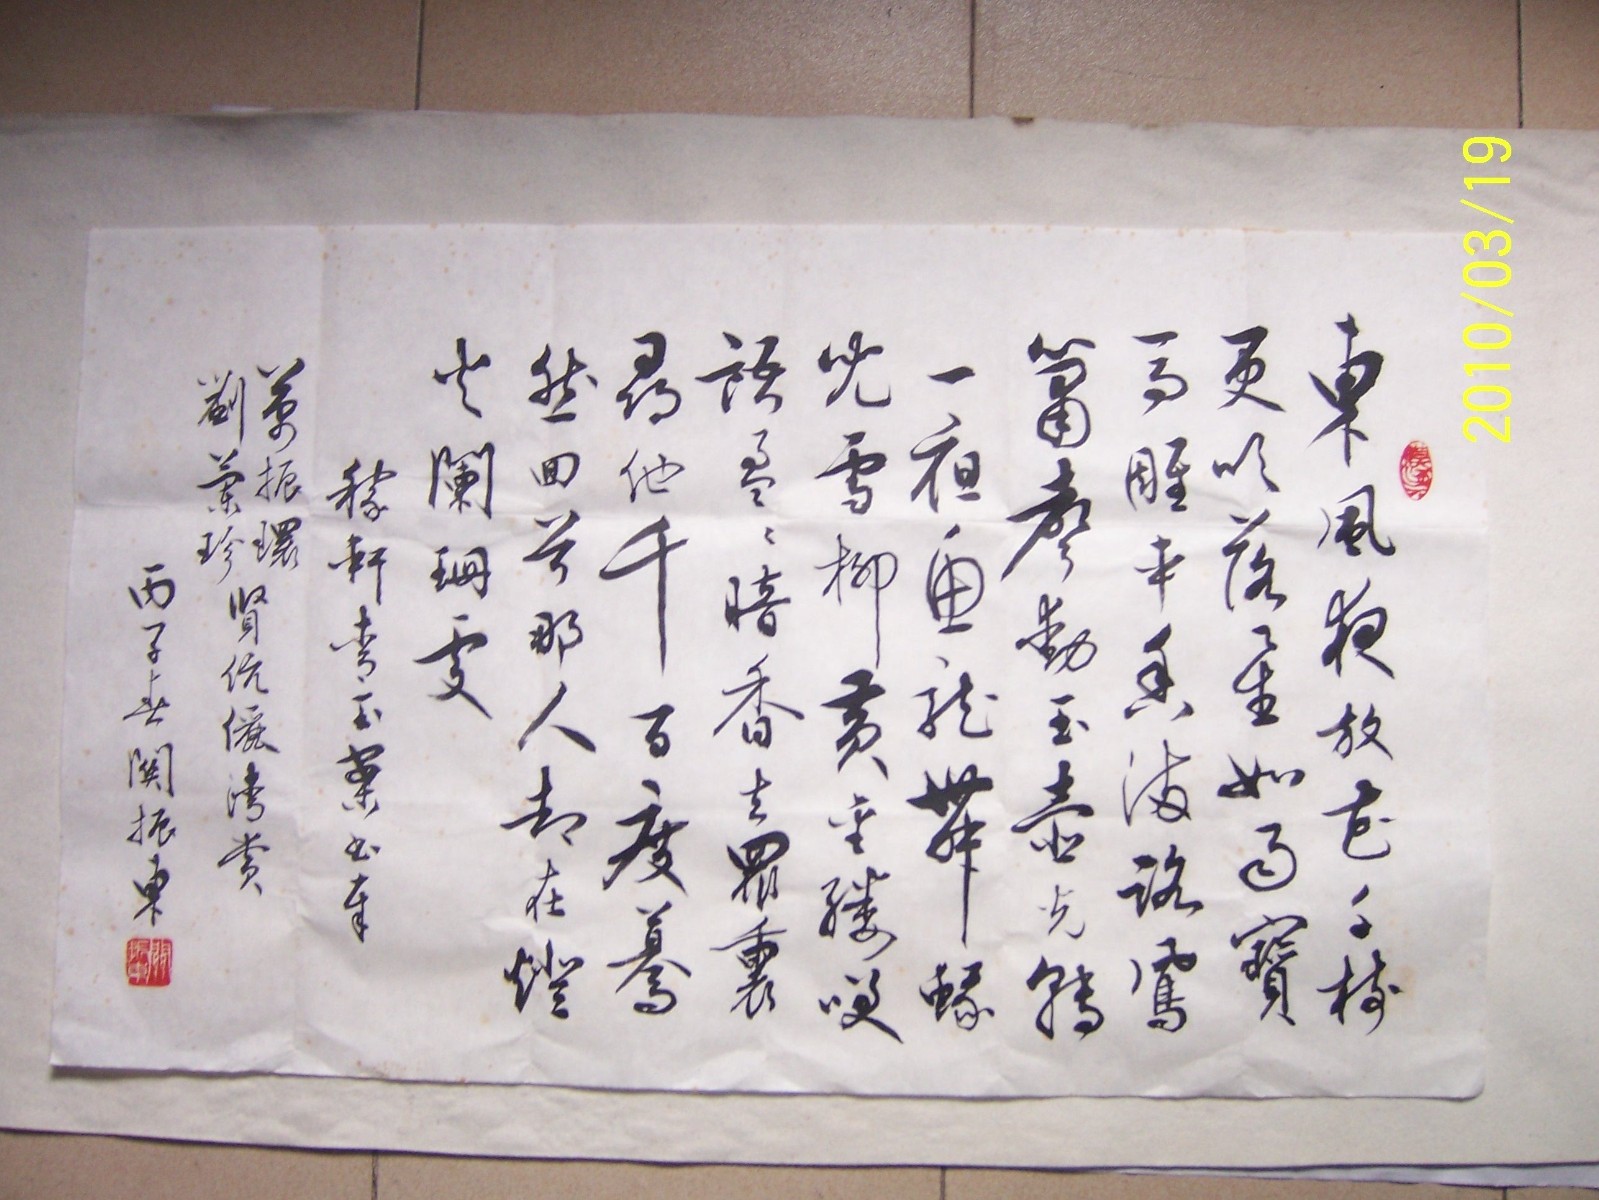 東風夜放花千樹
更吹落星如雨寶
馬雕車香滿路鳳
簫聲動玉壺光轉
一夜魚龍舞蛾
兒雪柳黃金縷笑
語盈〻暗香去眾裏
尋他千百度驀
然回首那人却在燈
火闌珊處
稼軒青玉案書奉
萬振環
劉蘭珍
賢伉儷清賞
丙子春關振東
2010/03/19